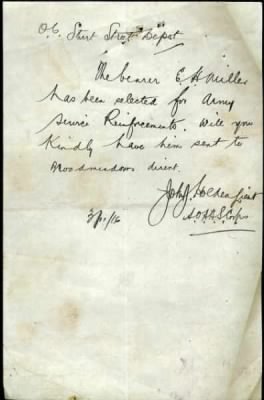 O.C. Sturt Street Depot
The bearer E. H. Miller
has been selected for Army
Service Reinforcements. Will you
kindly have him sent to
Broadmeadows direct.
John J.
Lieut
3/1/16